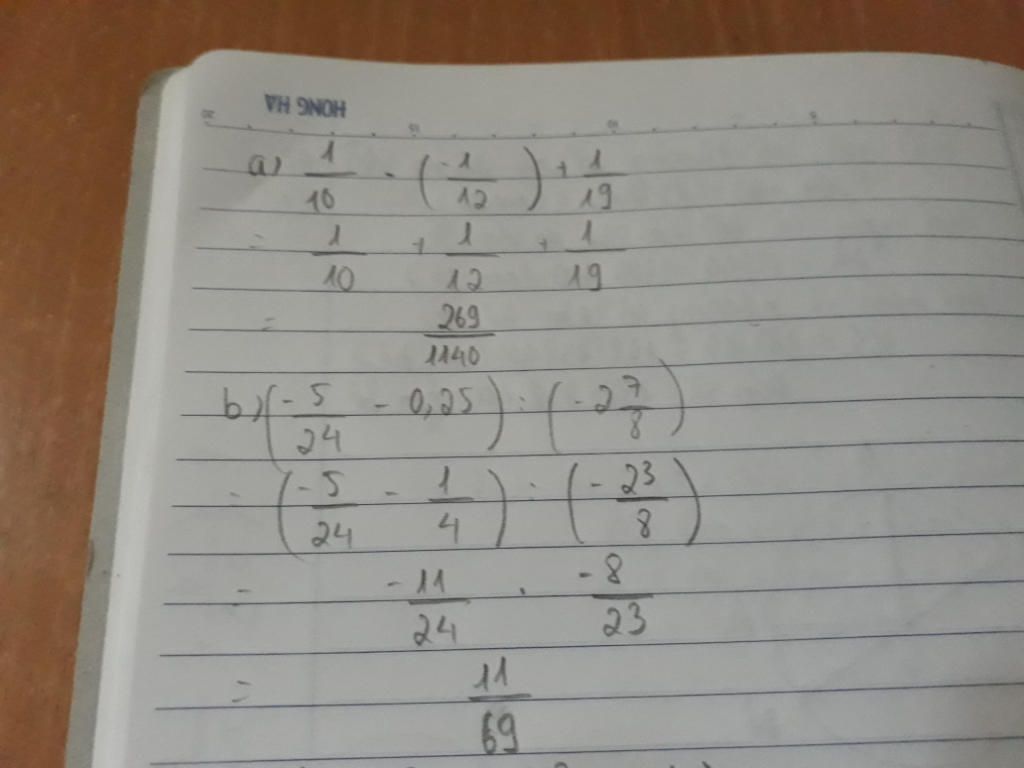 HONG HA
a) 1/10 - (-1/12) + 1/19
= 1/10 + 1/12 + 1/19
= 269/1140
b) (-5/24 - 0,25) : (-2 7/8)
= (-5/24 - 1/4) : (-23/8)
= -11/24 . -8/23
= 11/69